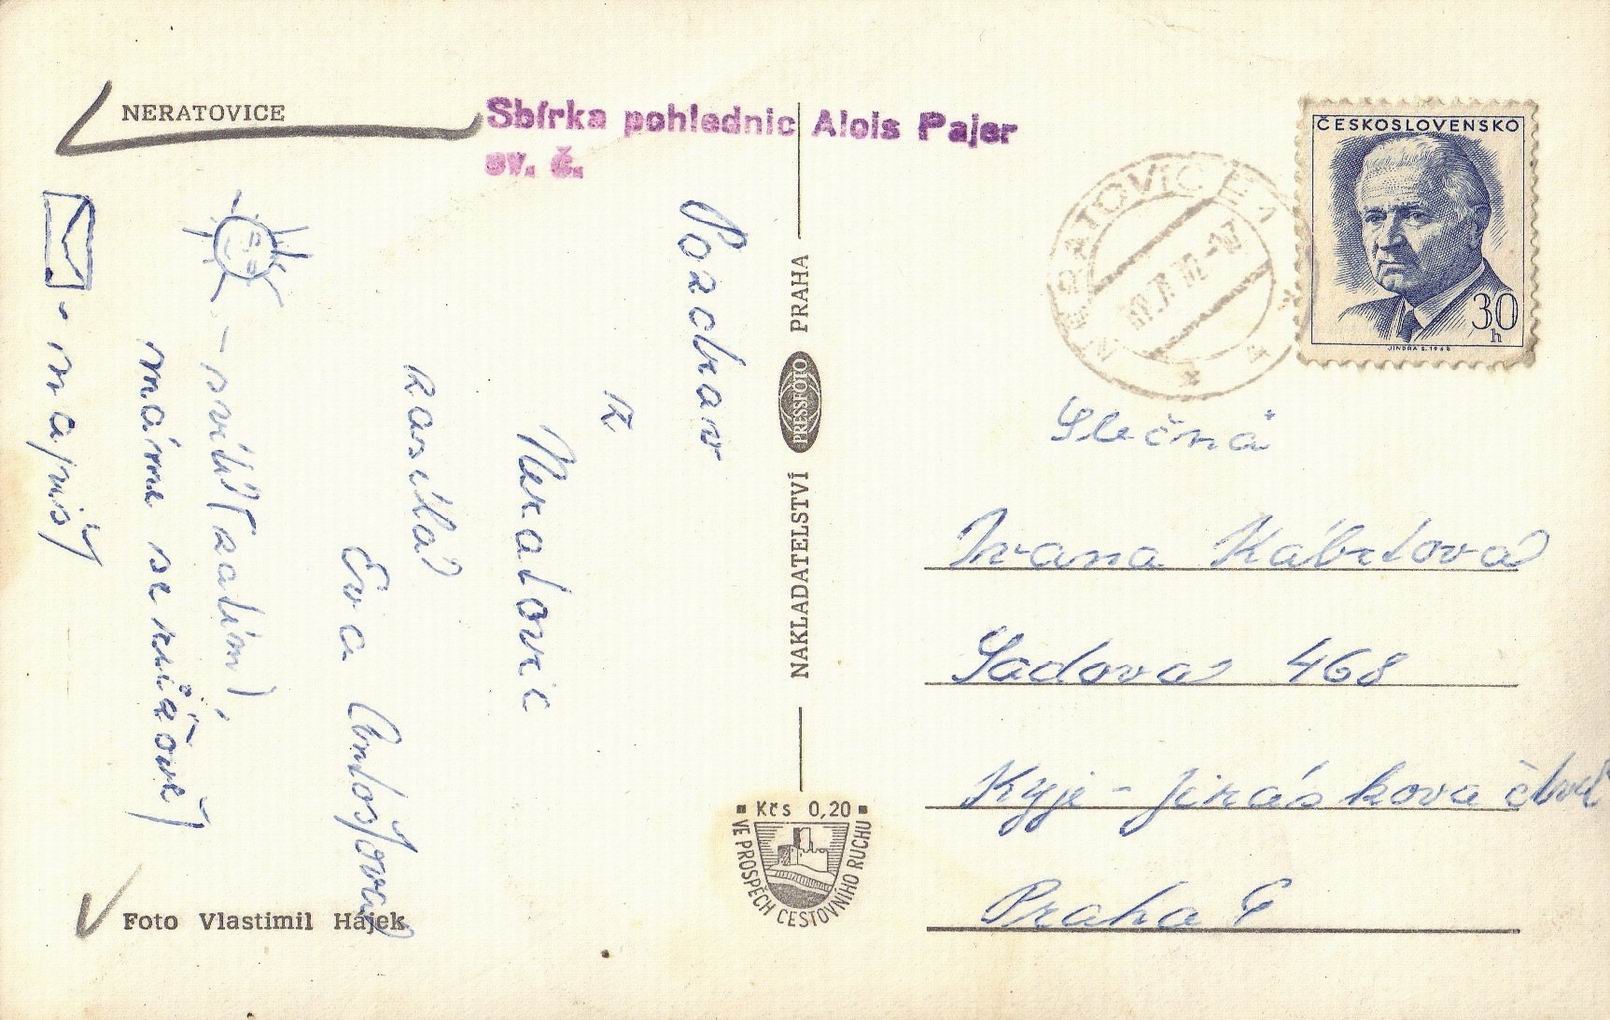 NERATOVICE
Sbírka pohlednic Alois Pajer
ev. č.
Pozdrav
z
Neratovic
zasílá
Eva
- svítí (zatím)
máme se
- napiš
Foto Vlastimil Hájek
NAKLADATELSTVÍ PRESSFOTO PRAHA
Kčs 0,20
VE PROSPĚCH CESTOVNÍHO RUCHU
NERATOVICE 1
ČESKOSLOVENSKO
30
h
JINDRA S. 1968
Slečna
Ivana Kábrtová
Sadová 468
Kyje - Jiráskova čtvrť
Praha 9